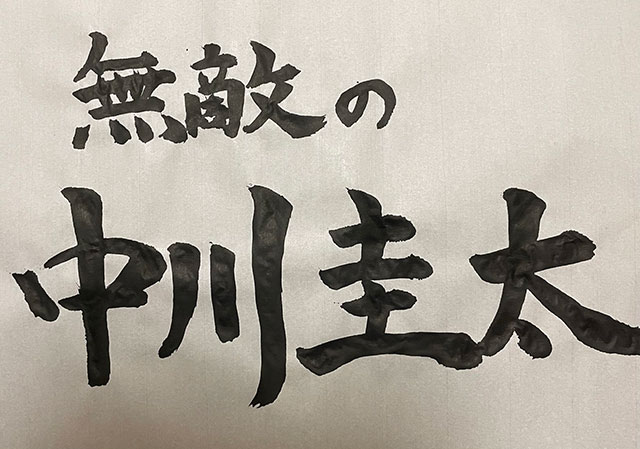 無敵の
中川圭太